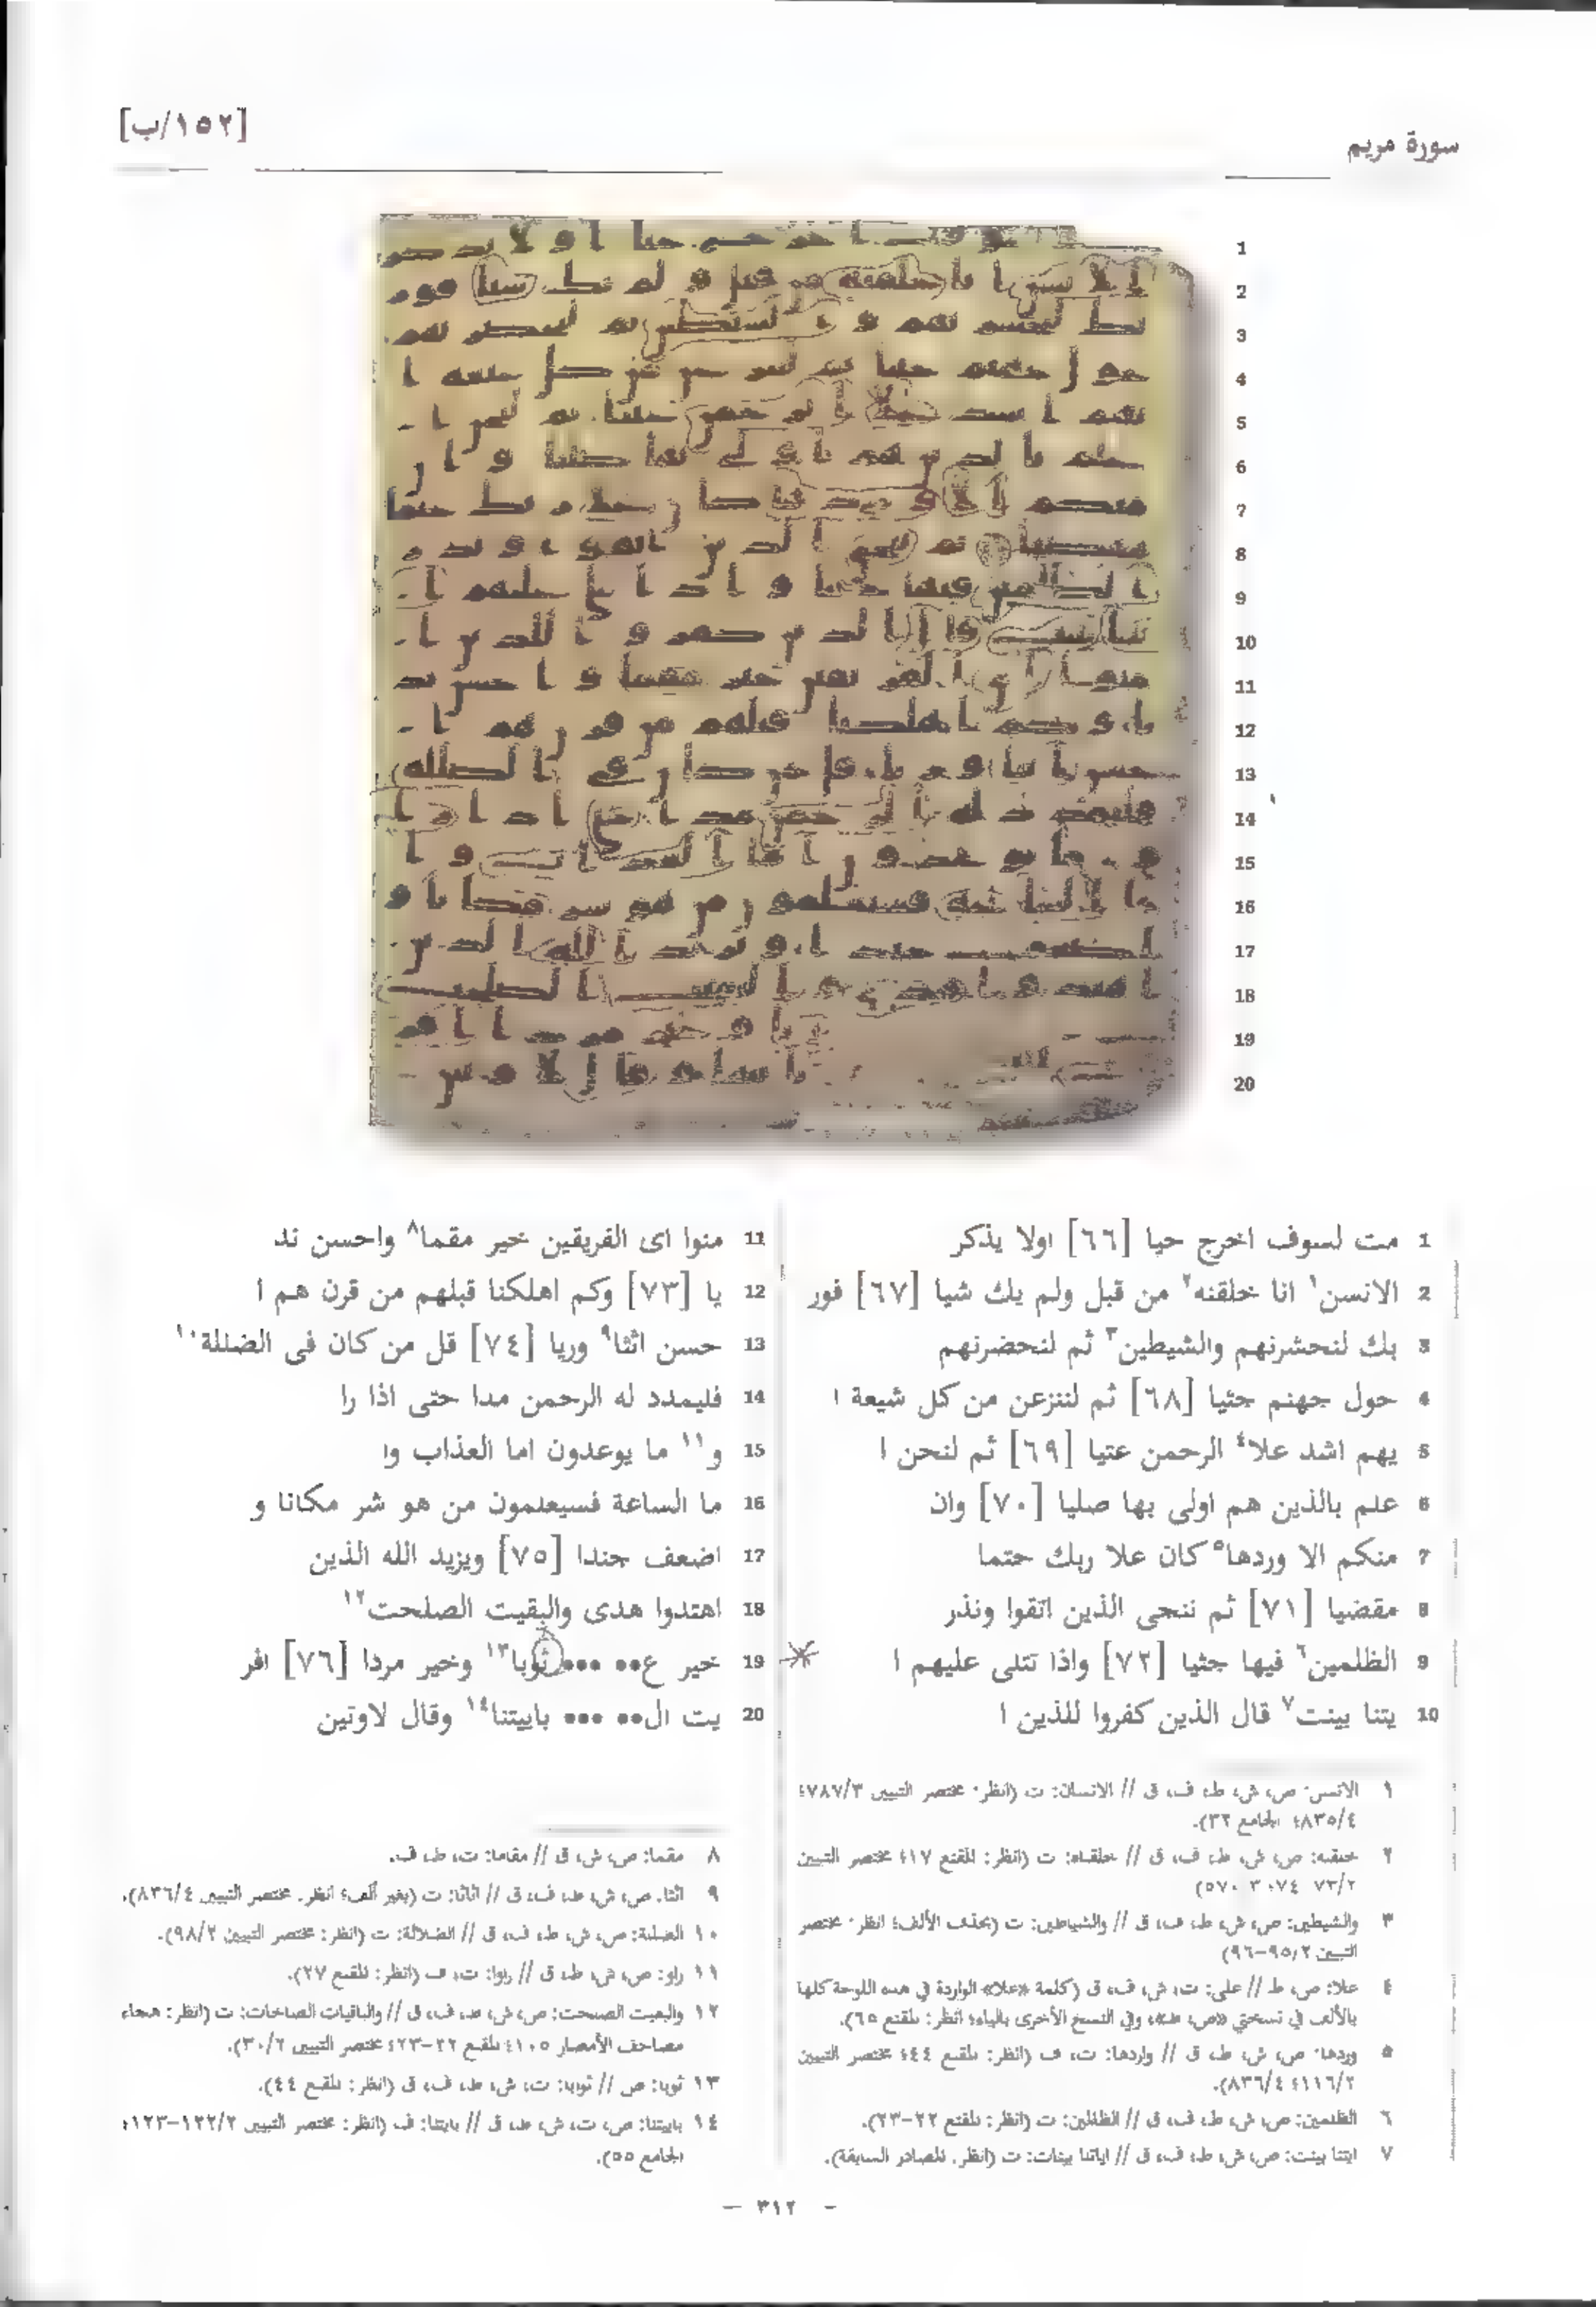 سورة مريم
[١٥٢/ب]
1 مت لسوف اخرج حيا [٦٦] اولا يذكر
2 الانسن١ انا خلقنه٢ من قبل ولم يك شيا [٦٧] فور
3 بك لنحشرنهم والشيطين٣ ثم لنحضرنهم
4 حول جهنم جثيا [٦٨] ثم لننزعن من كل شيعة ا
5 يهم اشد علا٤ الرحمن عتيا [٦٩] ثم لنحن ا
6 علم بالذين هم اولى بها صليا [٧٠] وان
7 منكم الا وردها٥ كان علا ربك حتما
8 مقضيا [٧١] ثم ننجى الذين اتقوا ونذر
9 الظلمين٦ فيها جثيا [٧٢] واذا تتلى عليهم ا
10 يتنا بينت٧ قال الذين كفروا للذين ا
11 منوا اى الفريقين خير مقما٨ واحسن ند
12 يا [٧٣] وكم اهلكنا قبلهم من قرن هم ا
13 حسن اثثا٩ وريا [٧٤] قل من كان فى الضللة١٠
14 فليمدد له الرحمن مدا حتى اذا را
15 و١١ ما يوعدون اما العذاب وا
16 ما الساعة فسيعلمون من هو شر مكانا و
17 اضعف جندا [٧٥] ويزيد الله الذين
18 اهتدوا هدى والبقيت الصلحت١٢
19 خير ع•• ••• ثوبا١٣ وخير مردا [٧٦] افر
20 يت ال•• ••• باييتنا١٤ وقال لاوتين
١ الانسن: ص، ش، ط، ف، ق // الانسان: ت (انظر: مختصر التبيين ٧٨٧/٣؛
٨٣٥/٤؛ الجامع ٣٢).
٢ خلقنه: ص، ش، ط، ف، ق // خلقناه: ت (انظر: المقنع ١٧؛ مختصر التبيين
٧٣/٢ ٧٤، ٣ ٥٧٠)
٣ والشيطين: ص، ش، ط، ف، ق // والشياطين: ت (بحذف الألف؛ انظر: مختصر
التبيين ٩٥/٢–٩٦)
٤ علا: ص، ط // على: ت، ش، ف، ق (كلمة «علا» الواردة في هذه اللوحة كلها
بالألف في نسختي «ص، ط»، وفي النسخ الأخرى بالياء؛ انظر: المقنع ٦٥).
٥ وردها: ص، ش، ط، ق // واردها: ت، ف (انظر: المقنع ٤٤؛ مختصر التبيين
١١٦/٢؛ ٨٣٦/٤).
٦ الظلمين: ص، ش، ط، ف، ق // الظالمين: ت (انظر: المقنع ٢٢–٢٣).
٧ ايتنا بينت: ص، ش، ط، ف، ق // اياتنا بينات: ت (انظر: المصادر السابقة).
٨ مقما: ص، ش، ق // مقاما: ت، ط، ف.
٩ اثثا: ص، ش، ط، ف، ق // اثاثا: ت (بغير ألف؛ انظر: مختصر التبيين ٨٣٦/٤).
١٠ الضللة: ص، ش، ط، ف، ق // الضلالة: ت (انظر: مختصر التبيين ٩٨/٢).
١١ راو: ص، ش، ط، ق // راوا: ت، ف (انظر: المقنع ٢٧).
١٢ والبقيت الصلحت: ص، ش، ط، ف، ق // والباقيات الصالحات: ت (انظر: هجاء
مصاحف الأمصار ١٠٥؛ المقنع ٢٢–٢٣؛ مختصر التبيين ٣٠/٢).
١٣ ثوبا: ص // ثوابا: ت، ش، ط، ف، ق (انظر: المقنع ٤٤).
١٤ باييتنا: ص، ت، ش، ط، ق // بايتنا: ف (انظر: مختصر التبيين ١٢٢/٢–١٢٣؛
الجامع ٥٥).
– ٣١٢ –